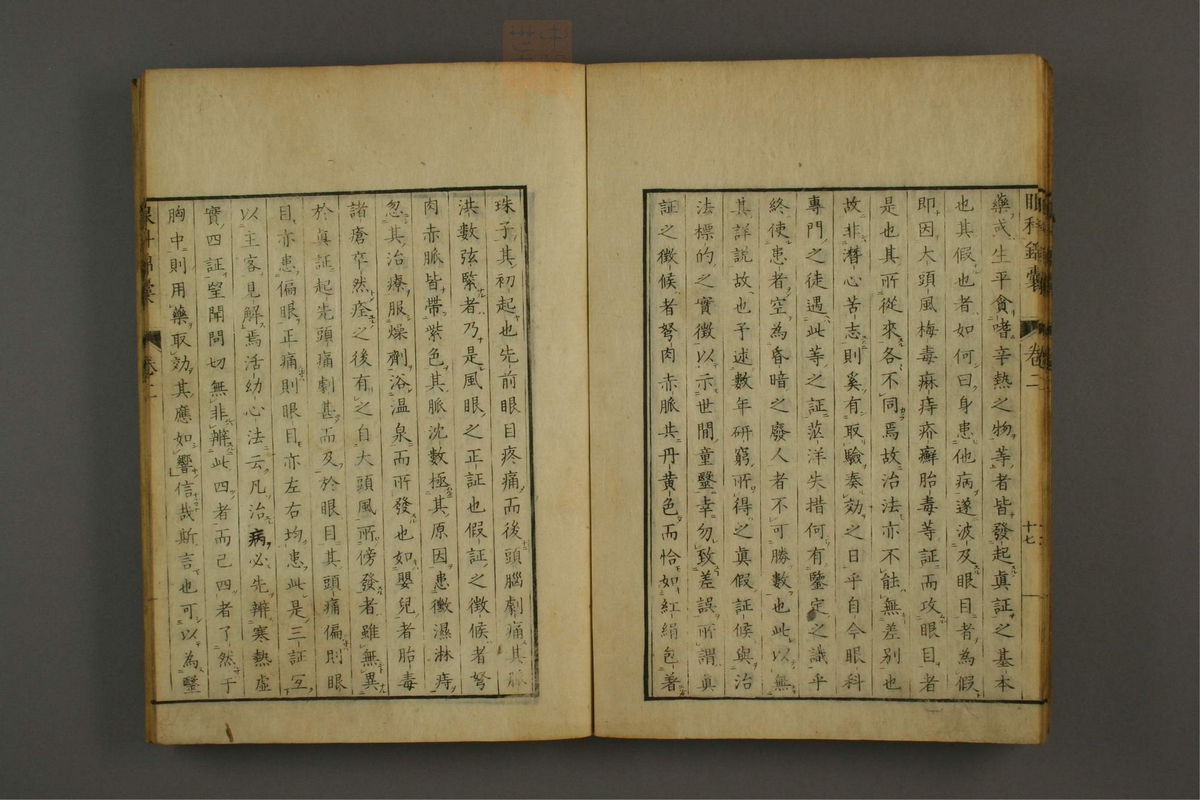 眼科錦囊 卷二 十七
藥或生平貪嗜辛熱之物等者皆發起眞証之基本
也其假也者如何曰身患他病遂波及眼目者為假
即因大頭風梅毒痳痔疥癬胎毒等証而攻眼目者
是也其所從來各不同焉故治法亦不能無差別也
故非潛心苦志則奚有取驗奏効之日乎自今眼科
專門之徒遇此等之証茫洋失措何有鑒定之識乎
終使患者空為昏暗之廢人者不可勝數也此以無
其詳說故也予述數年研窮所得之眞假証候與治
法標的之實徵以示世間童蒙幸勿致差誤所謂眞
証之徵候者胬肉赤脈共丹黃色而恰如紅絹包著
珠子其初起也先前眼目疼痛而後頭腦劇痛其脈
洪數弦緊者乃是風眼之正証也假証之徵候者胬
肉赤脈皆帶紫色其脈沈數極其原因患黴濕淋痔
忽其治療服燥劑浴温泉而所發也如嬰兒者胎毒
諸瘡卒然痊之後有之自大頭風所傍發者雖無異
於眞証起先頭痛劇甚而及於眼目其頭痛偏則眼
目亦患偏眼正痛則眼目亦左右均患此是三証互
以主客見解焉活幼心法云凡治病必先辨寒熱虛
實四証望聞問切無非辨此四者而已四者了然于
胸中則用藥取効其應如響信哉斯言也可以為醫
眼科錦囊 卷二